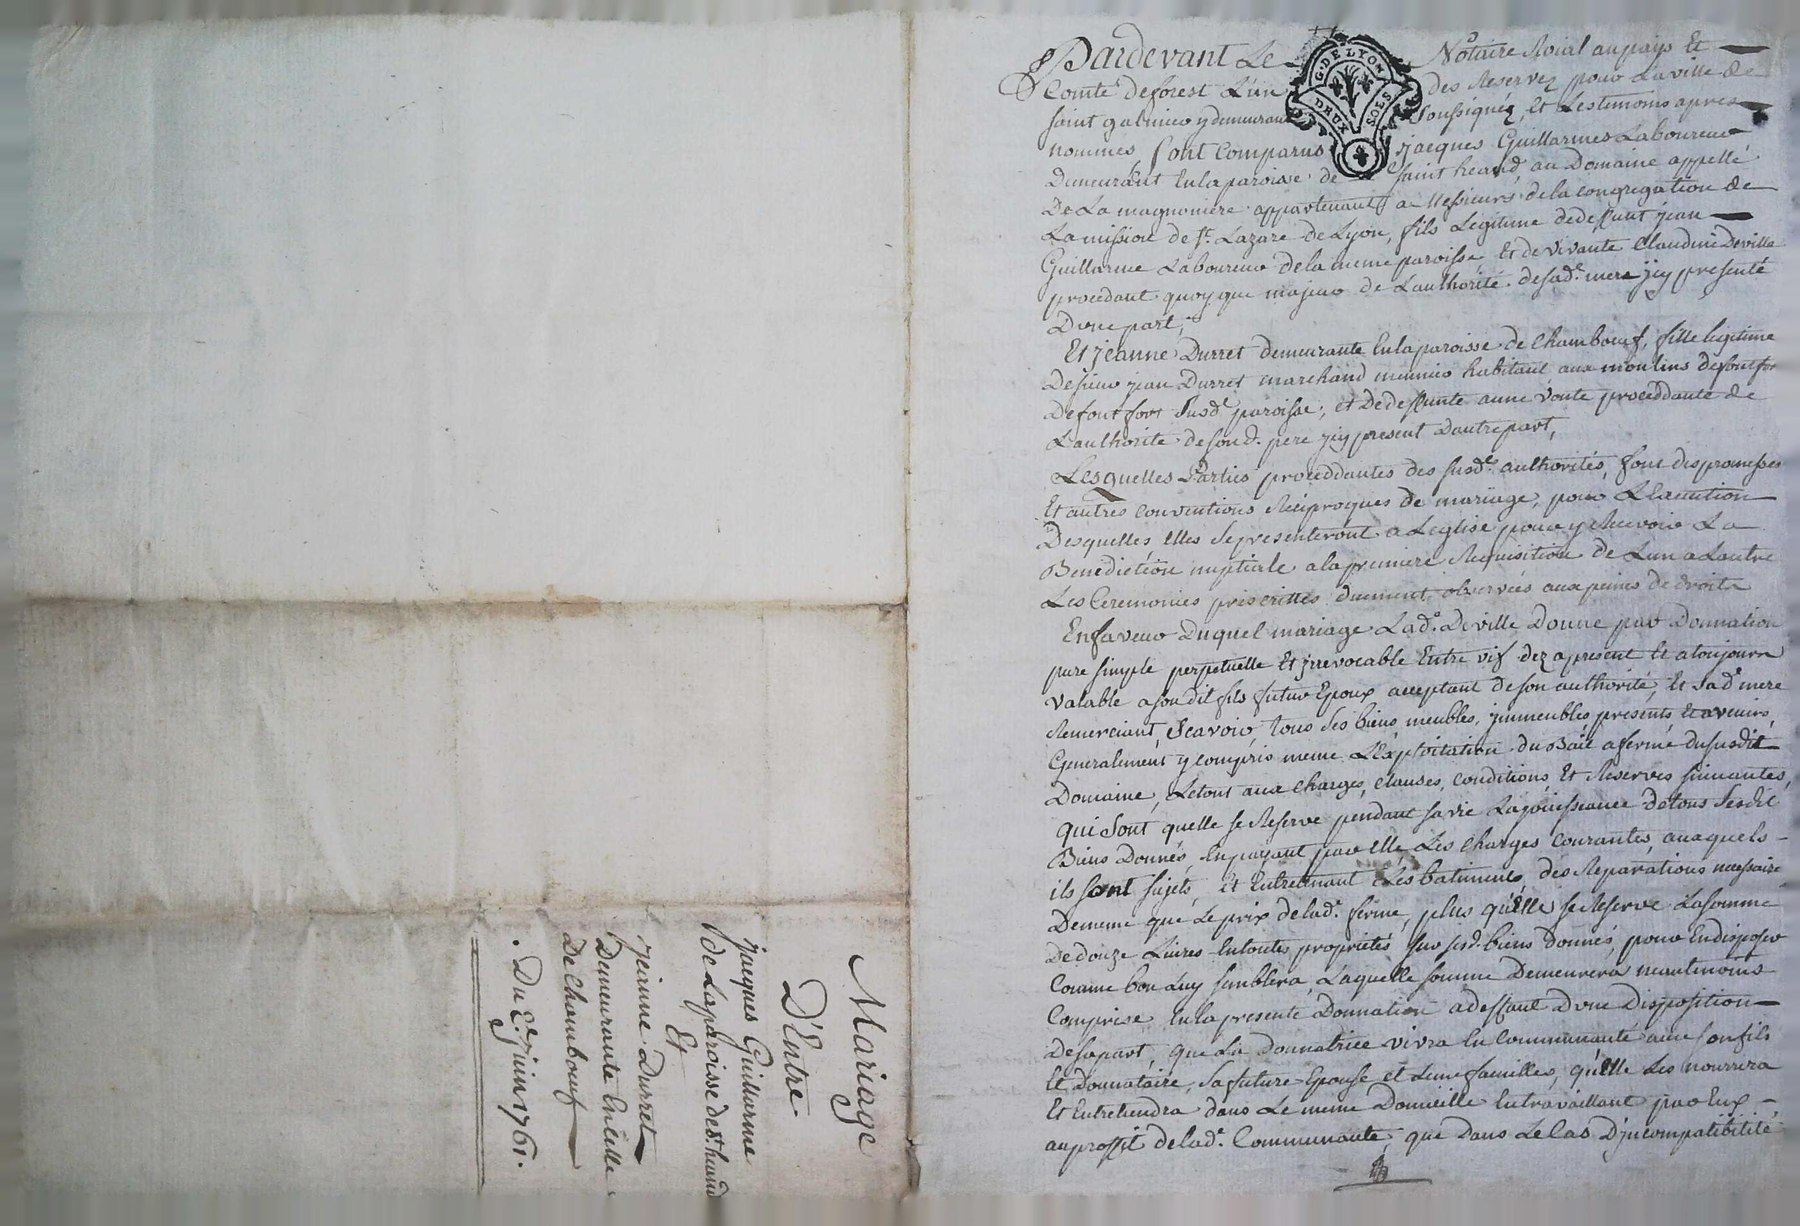 Mariage
D'Entre
jacques Guillarme
de Laparoisse de St. heand
Et
jeanne Durret
Demeurante En celle
De Chambœuf
Du 2e. juin 1761.
G. DE LYON
DEUX SOLS
Pardevant Le Notaire Roial au pays Et
Comté deforest L'un des Reservez pour Laville de
saint galmier y demeurant soussignéz, Et Lestemoins apres
nommés sont Comparus jacques Guillarmes Laboureur
Demeurant En la paroisse de saint heand, au Domaine appellé
De La magnoniere appartenant a Messieurs de la congregation de
La mission de St. Lazare de Lyon, fils Legitime de deffunt jean
Guillarme Laboureur de la meme paroisse Et de vivante Claudine Deville
procedant quoy que majeur de L'authorité de sade. mere jcy presente
D'une part;
Et jeanne Durret demeurante En la paroisse de Chambœuf, fille legitime
De sieur jean Durret marchand meunier habitant aux moulins de fontfor
De fontfort susde. paroisse, et De deffunte anne Voute proceddante de
L'authorité de sond. pere jcy present D'autre part,
Lesquelles Parties proceddantes des susdes. authorités, font des promesses
Et autres conventions Réciproques de mariage, pour L'Exécution
Desquelles elles se presenteront a Leglise pour y Recevoir La
Benediction nuptiale a la premiere Requisition de L'un a L'autre
Les Ceremonies prescrittes duement observées aux peines de droit
En faveur Duquel mariage Lade. Deville Donne par Donnation
pure simple perpetuelle Et jrrevocable Entre vif dez apresent Et a toujours
valable a son dit fils futur Epoux acceptant de son authorité, Et sade. mere
Remerciant, Scavoir, tous ses biens meubles, jmmeubles, presents, Et avenirs,
Generalement y compris meme L'Exploitation du Bail a ferme du susdit
Domaine, Le tout aux Charges, Clauses, Conditions, Et Reserves suivantes,
Qui sont quelle se Reserve pendant sa vie La jouissance de tous ses dit
Biens Donnés, En payant par elle Les Charges Courantes, auxquels
ils sont sujets, et Entretenant Les batiments, des Reparations necessaire
De meme que Le prix de lade. ferme, plus qu'Elle se Reserve La somme
De douze Livres En toutes proprietés sur sesd. biens donnés, pour En disposer
Comme bon Luy semblera, Laquelle somme Demeurera neantmoins
Comprise En la presente Donnation a deffaut D'une Disposition
De sa part, Que La Donnatrice vivra En Communauté avec son fils
Le Donnataire, sa future Epouse et Leur famille, qu'Elle Les nourrira
Et Entretiendra dans Le meme Domicille En travaillant par Eux
au proffit de lade. Communauté, que Dans Le Cas D'jncompatibilité